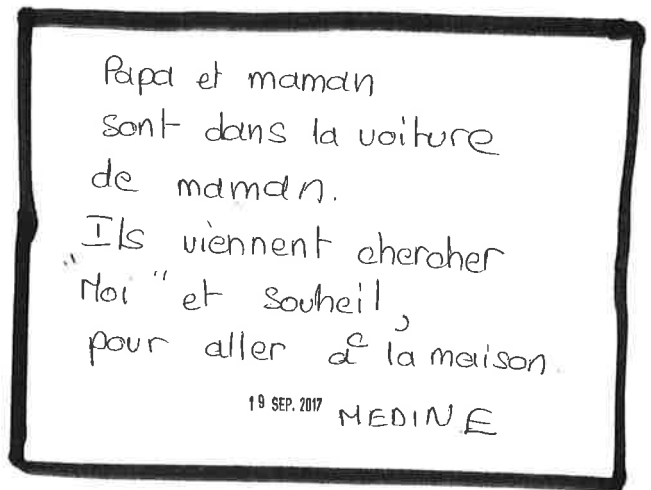 Papa et maman
sont dans la voiture
de maman.
Ils viennent chercher
"Moi" et Souheil,
pour aller à la maison
19 SEP. 2017 MEDINE